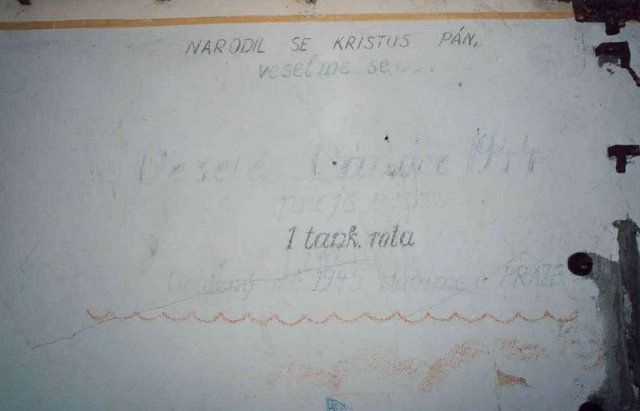 NARODIL SE KRISTUS PÁN,
veselme se...
Veselé Vánoce 1944
1 tank. rota
1945 PRAZE